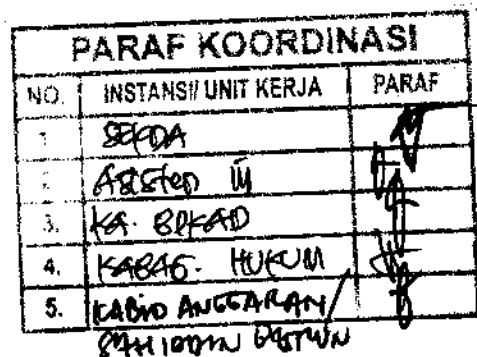 PARAF KOORDINASI
NO. INSTANSI/ UNIT KERJA PARAF
1. SEKDA
2. Asisten III
3. KA. BPKAD
4. KABAG. HUKUM
5. KABID ANGGARAN /